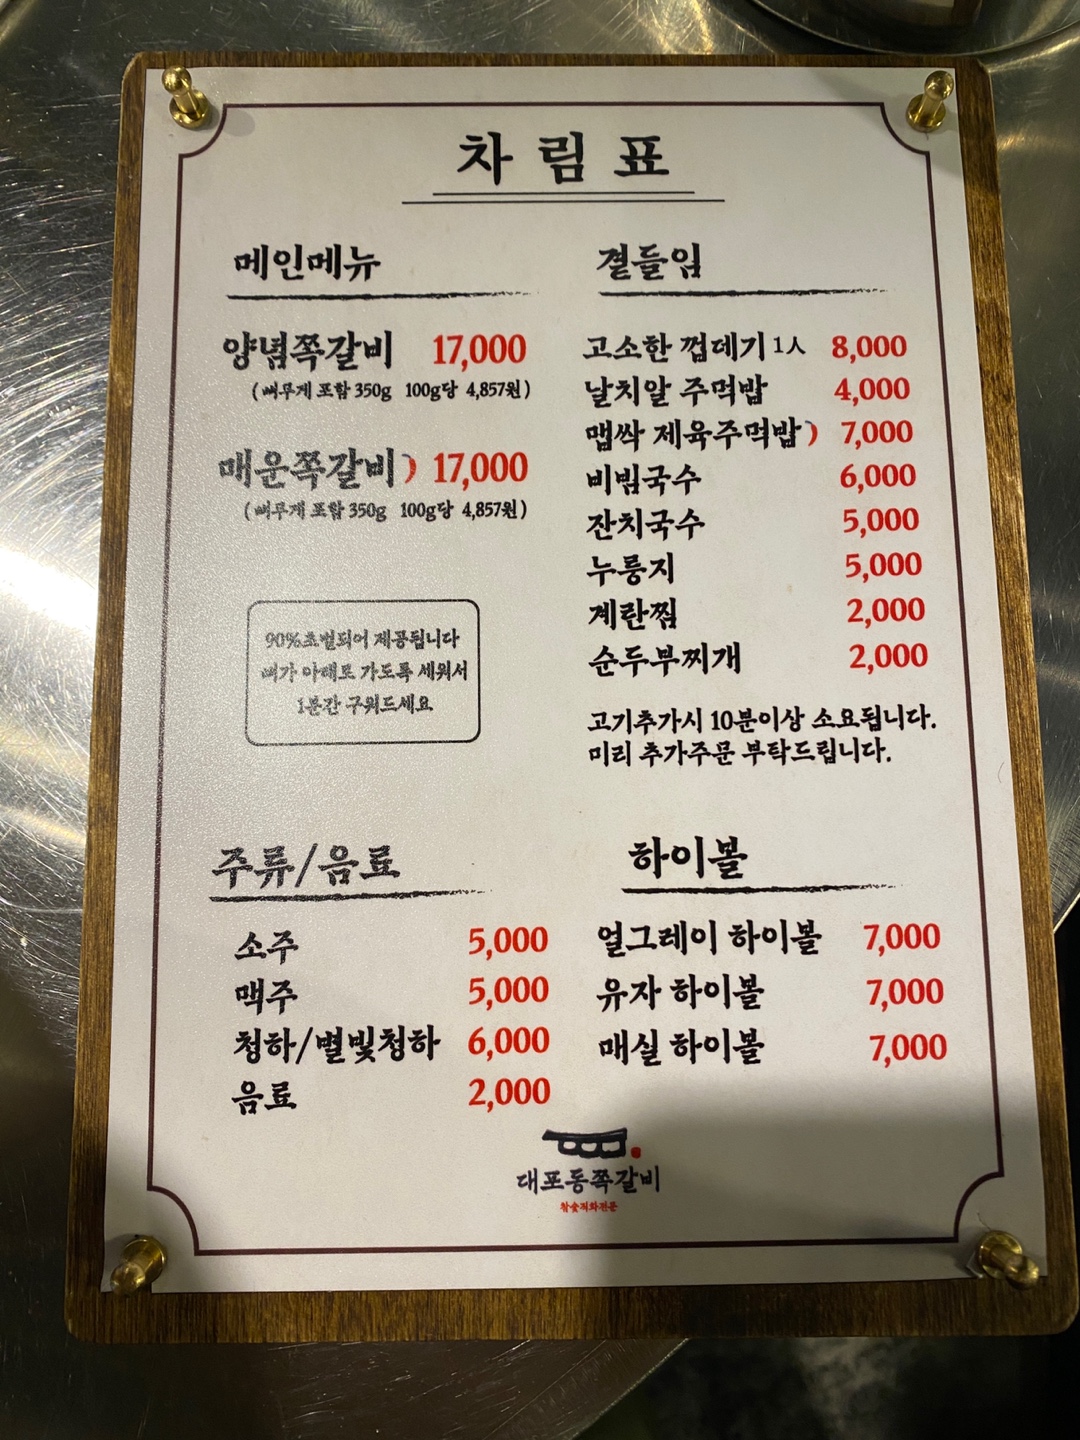 차림표
메인메뉴
양념쪽갈비 17,000
(뼈무게 포함 350g 100g당 4,857원)
매운쪽갈비 17,000
(뼈무게 포함 350g 100g당 4,857원)
90%초벌되어 제공됩니다
뼈가 아래로 가도록 세워서
1분간 구워드세요
곁들임
고소한 껍데기 1人 8,000
날치알 주먹밥 4,000
맵싹 제육주먹밥 7,000
비빔국수 6,000
잔치국수 5,000
누룽지 5,000
계란찜 2,000
순두부찌개 2,000
고기추가시 10분이상 소요됩니다.
미리 추가주문 부탁드립니다.
주류/음료
소주 5,000
맥주 5,000
청하/별빛청하 6,000
음료 2,000
하이볼
얼그레이 하이볼 7,000
유자 하이볼 7,000
매실 하이볼 7,000
대포동쪽갈비